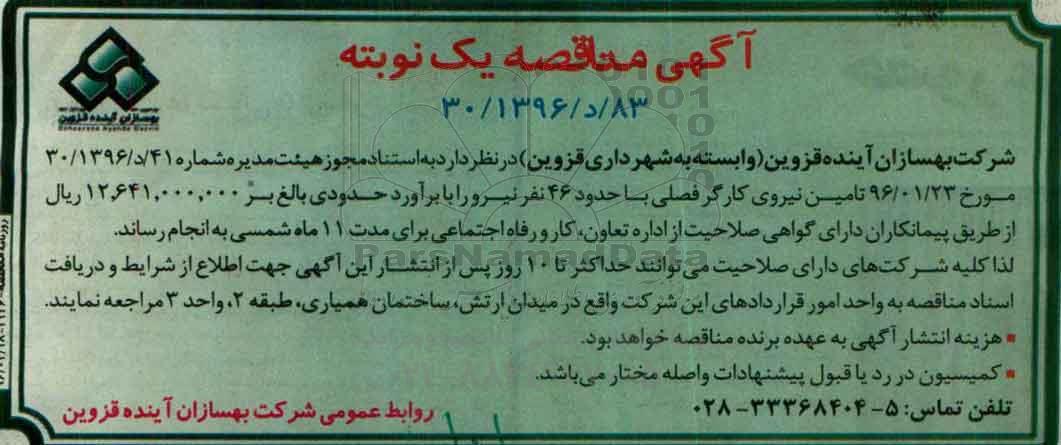 آگهی مناقصه یک نوبته
۳۰/۱۳۹۶/د/۸۳
بهسازان آینده قزوین
Behsazane Ayande Qazvin
شرکت بهسازان آینده قزوین (وابسته به شهرداری قزوین) در نظر دارد به استناد مجوز هیئت مدیره شماره ۳۰/۱۳۹۶/د/۴۱
مورخ ۹۶/۰۱/۲۳ تامین نیروی کارگر فصلی با حدود ۴۶ نفر نیرو را با برآورد حدودی بالغ بر ۱۲,۶۴۱,۰۰۰,۰۰۰ ریال
از طریق پیمانکاران دارای گواهی صلاحیت از اداره تعاون، کار و رفاه اجتماعی برای مدت ۱۱ ماه شمسی به انجام رساند.
لذا کلیه شرکت‌های دارای صلاحیت می‌توانند حداکثر تا ۱۰ روز پس از انتشار این آگهی جهت اطلاع از شرایط و دریافت
اسناد مناقصه به واحد امور قراردادهای این شرکت واقع در میدان ارتش، ساختمان همیاری، طبقه ۲، واحد ۳ مراجعه نمایند.
■ هزینه انتشار آگهی به عهده برنده مناقصه خواهد بود.
■ کمیسیون در رد یا قبول پیشنهادات واصله مختار می‌باشد.
تلفن تماس: ۵-۳۳۳۶۸۴۰۴-۰۲۸
روابط عمومی شرکت بهسازان آینده قزوین
ParsNamadData